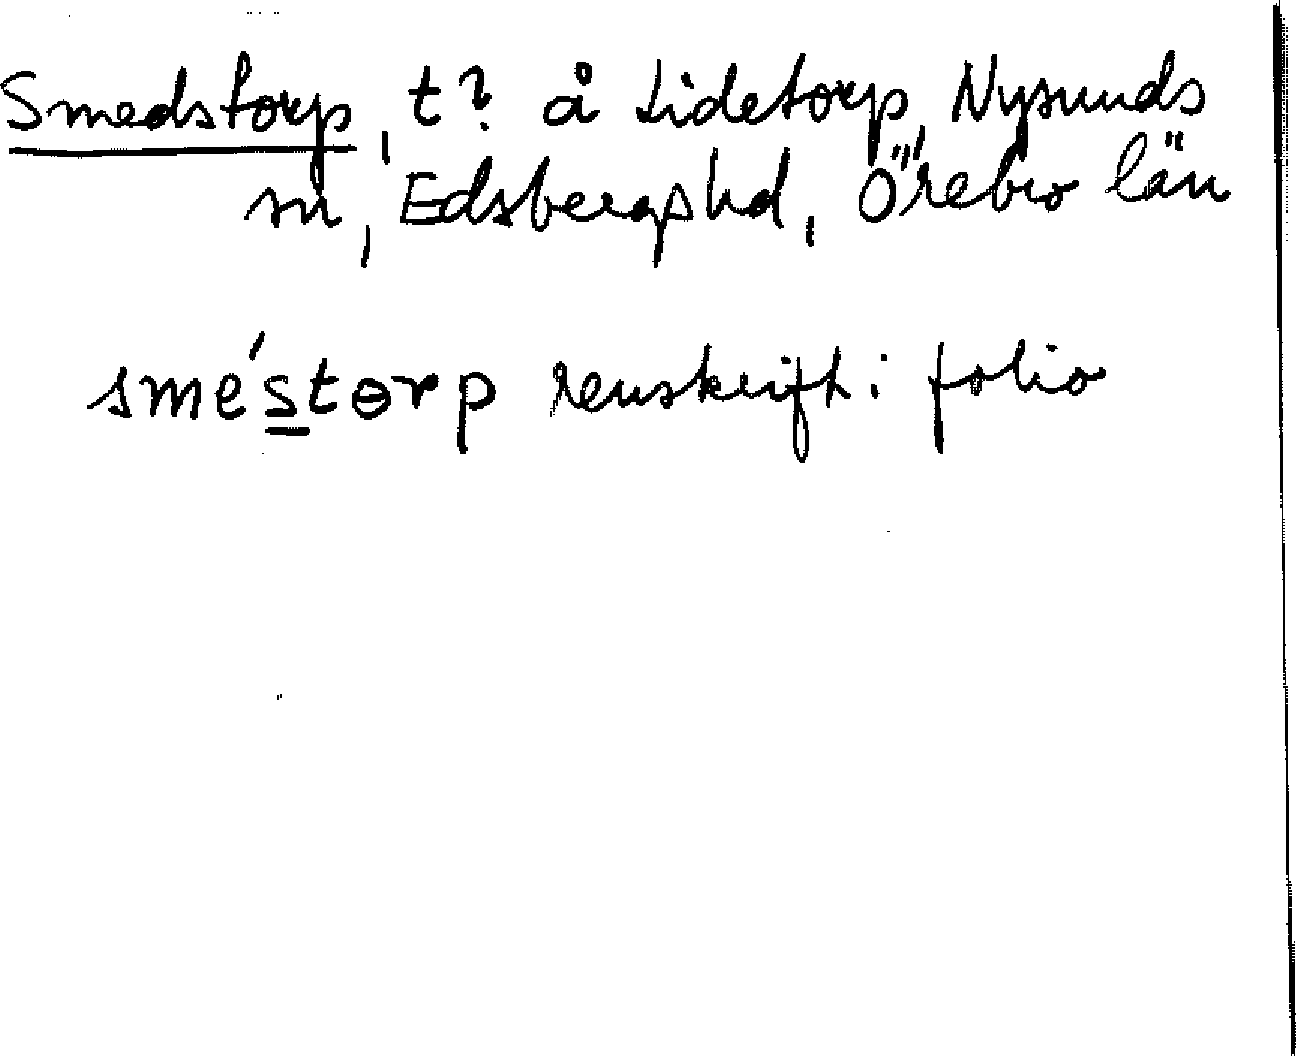 Smedstorp, t? å Lidetorp, Nysunds
sn, Edsbergs hd, Örebro län
sme´storp renskrift i folio